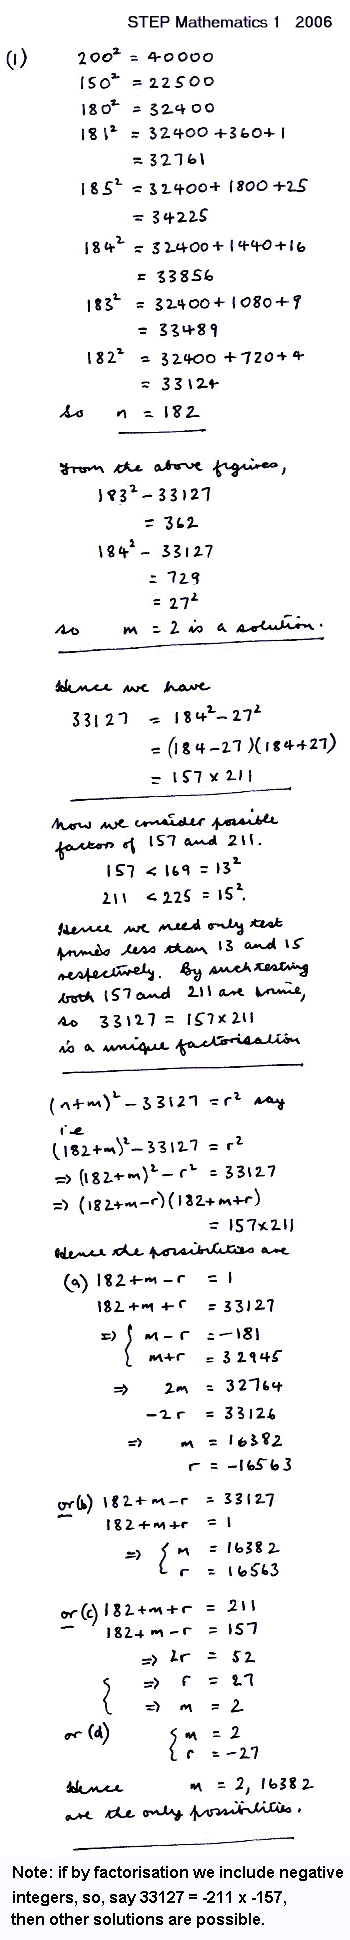 STEP Mathematics 1 2006
(1) 200² = 40000
150² = 22500
180² = 32400
181² = 32400 + 360 + 1
= 32761
185² = 32400 + 1800 + 25
= 34225
184² = 32400 + 1440 + 16
= 33856
183² = 32400 + 1080 + 9
= 33489
182² = 32400 + 720 + 4
= 33124
So n = 182
From the above figures,
183² - 33127
= 362
184² - 33127
= 729
= 27²
so m = 2 is a solution.
Hence we have
33127 = 184² - 27²
= (184-27)(184+27)
= 157 × 211
Now we consider possible
factors of 157 and 211.
157 < 169 = 13²
211 < 225 = 15².
Hence we need only test
primes less than 13 and 15
respectively. By such testing
both 157 and 211 are prime,
so 33127 = 157 × 211
is a unique factorisation
(n+m)² - 33127 = r² say
i.e
(182+m)² - 33127 = r²
⇒ (182+m)² - r² = 33127
⇒ (182+m-r)(182+m+r)
= 157×211
Hence the possibilities are
(a) 182+m-r = 1
182+m+r = 33127
⇒ { m-r = -181
m+r = 32945
⇒ 2m = 32764
-2r = 33126
⇒ m = 16382
r = -16563
or (b) 182+m-r = 33127
182+m+r = 1
⇒ { m = 16382
r = 16563
or (c) 182+m+r = 211
182+m-r = 157
⇒ 2r = 52
{ ⇒ r = 27
⇒ m = 2
or (d) { m = 2
r = -27
Hence m = 2, 16382
are the only possibilities.
Note: if by factorisation we include negative
integers, so, say 33127 = -211 x -157,
then other solutions are possible.